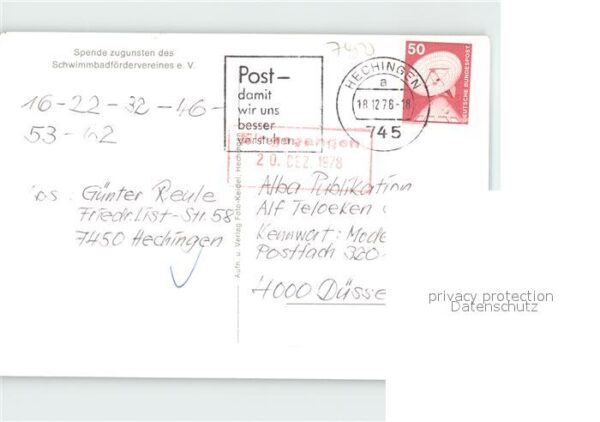 Spende zugunsten des
Schwimmbadfördervereines e. V.
16-22-32-46-
53-42
Günter Reule
Friedr.List-Str. 58
7450 Hechingen
Post-
damit
wir uns
besser
verstehen
HECHINGEN
a
18.12.78-18
745
50
DEUTSCHE BUNDESPOST
Eingegangen
20. DEZ. 1978
Aufn. u. Verlag Foto-Keidel, Hechingen
Alba Publikation
Alf Teloeken
Kennwort: Mode
Postfach 320-
4000 Düsse
privacy protection
Datenschutz